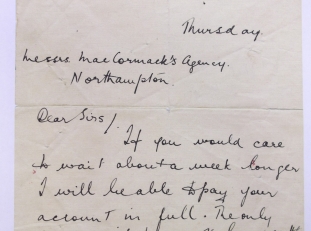 Thursday.
Messrs MacCormack's Agency.
Northampton.
Dear Sirs/.
If you would care
to wait about a week longer
I will be able to pay your
account in full. The only